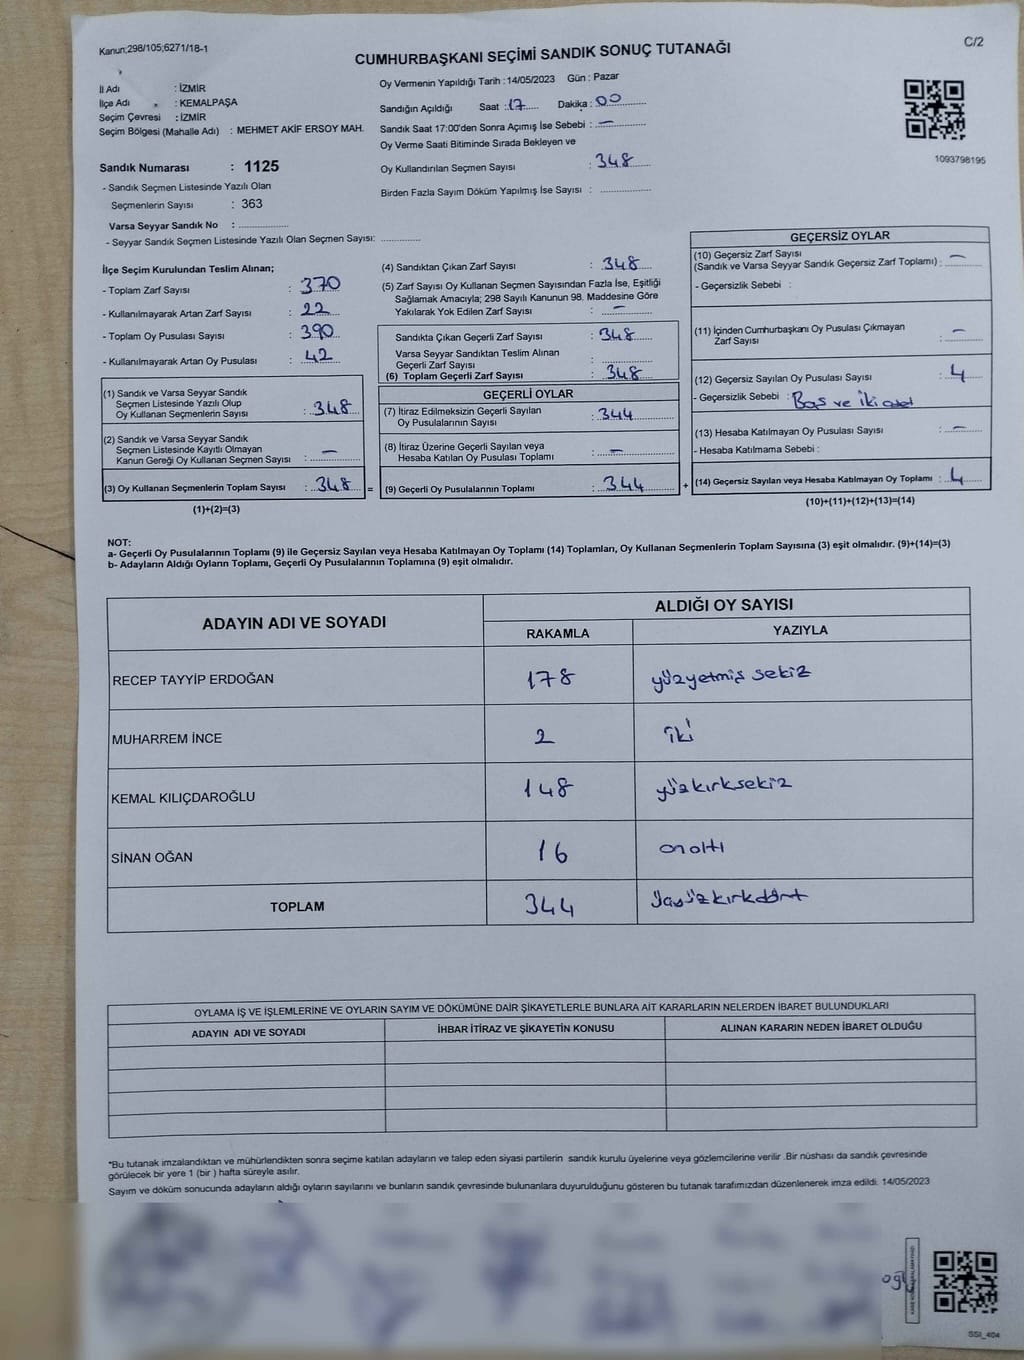 Kanun;298/105;6271/18-1
CUMHURBAŞKANI SEÇİMİ SANDIK SONUÇ TUTANAĞI
C/2
İl Adı : İZMİR
İlçe Adı : KEMALPAŞA
Seçim Çevresi : İZMİR
Seçim Bölgesi (Mahalle Adı) : MEHMET AKİF ERSOY MAH.
Sandık Numarası : 1125
- Sandık Seçmen Listesinde Yazılı Olan
Seçmenlerin Sayısı : 363
Varsa Seyyar Sandık No :
- Seyyar Sandık Seçmen Listesinde Yazılı Olan Seçmen Sayısı:
Oy Vermenin Yapıldığı Tarih : 14/05/2023 Gün : Pazar
Sandığın Açıldığı Saat : 17 Dakika : 00
Sandık Saat 17:00'den Sonra Açımış İse Sebebi : —
Oy Verme Saati Bitiminde Sırada Bekleyen ve
Oy Kullandırılan Seçmen Sayısı : 348
Birden Fazla Sayım Döküm Yapılmış İse Sayısı :
1093798195
İlçe Seçim Kurulundan Teslim Alınan;
- Toplam Zarf Sayısı : 370
- Kullanılmayarak Artan Zarf Sayısı : 22
- Toplam Oy Pusulası Sayısı : 390
- Kullanılmayarak Artan Oy Pusulası : 42
(1) Sandık ve Varsa Seyyar Sandık
Seçmen Listesinde Yazılı Olup
Oy Kullanan Seçmenlerin Sayısı : 348
(2) Sandık ve Varsa Seyyar Sandık
Seçmen Listesinde Kayıtlı Olmayan
Kanun Gereği Oy Kullanan Seçmen Sayısı : —
(3) Oy Kullanan Seçmenlerin Toplam Sayısı : 348 =
(1)+(2)=(3)
(4) Sandıktan Çıkan Zarf Sayısı : 348
(5) Zarf Sayısı Oy Kullanan Seçmen Sayısından Fazla İse, Eşitliği
Sağlamak Amacıyla; 298 Sayılı Kanunun 98. Maddesine Göre
Yakılarak Yok Edilen Zarf Sayısı : —
Sandıkta Çıkan Geçerli Zarf Sayısı : 348
Varsa Seyyar Sandıktan Teslim Alınan
Geçerli Zarf Sayısı :
(6) Toplam Geçerli Zarf Sayısı : 348
GEÇERLİ OYLAR
(7) İtiraz Edilmeksizin Geçerli Sayılan
Oy Pusulalarının Sayısı : 344
(8) İtiraz Üzerine Geçerli Sayılan veya
Hesaba Katılan Oy Pusulası Toplamı : —
(9) Geçerli Oy Pusulalarının Toplamı : 344 +
GEÇERSİZ OYLAR
(10) Geçersiz Zarf Sayısı
(Sandık ve Varsa Seyyar Sandık Geçersiz Zarf Toplamı) : —
- Geçersizlik Sebebi :
(11) İçinden Cumhurbaşkanı Oy Pusulası Çıkmayan
Zarf Sayısı : —
(12) Geçersiz Sayılan Oy Pusulası Sayısı : 4
- Geçersizlik Sebebi : Boş ve İki adet
(13) Hesaba Katılmayan Oy Pusulası Sayısı : —
- Hesaba Katılmama Sebebi :
(14) Geçersiz Sayılan veya Hesaba Katılmayan Oy Toplamı : 4
(10)+(11)+(12)+(13)=(14)
NOT:
a- Geçerli Oy Pusulalarının Toplamı (9) ile Geçersiz Sayılan veya Hesaba Katılmayan Oy Toplamı (14) Toplamları, Oy Kullanan Seçmenlerin Toplam Sayısına (3) eşit olmalıdır. (9)+(14)=(3)
b- Adayların Aldığı Oyların Toplamı, Geçerli Oy Pusulalarının Toplamına (9) eşit olmalıdır.
ADAYIN ADI VE SOYADI ALDIĞI OY SAYISI
RAKAMLA YAZIYLA
RECEP TAYYİP ERDOĞAN 178 yüzyetmiş sekiz
MUHARREM İNCE 2 iki
KEMAL KILIÇDAROĞLU 148 yüzkırksekiz
SİNAN OĞAN 16 onaltı
TOPLAM 344 üçyüzkırkdört
OYLAMA İŞ VE İŞLEMLERİNE VE OYLARIN SAYIM VE DÖKÜMÜNE DAİR ŞİKAYETLERLE BUNLARA AİT KARARLARIN NELERDEN İBARET BULUNDUKLARI
ADAYIN ADI VE SOYADI İHBAR İTİRAZ VE ŞİKAYETİN KONUSU ALINAN KARARIN NEDEN İBARET OLDUĞU
*Bu tutanak imzalandıktan ve mühürlendikten sonra seçime katılan adayların ve talep eden siyasi partilerin sandık kurulu üyelerine veya gözlemcilerine verilir .Bir nüshası da sandık çevresinde
görülecek bir yere 1 (bir ) hafta süreyle asılır.
Sayım ve döküm sonucunda adayların aldığı oyların sayılarını ve bunların sandık çevresinde bulunanlara duyurulduğunu gösteren bu tutanak tarafımızdan düzenlenerek imza edildi. 14/05/2023
SSI_404